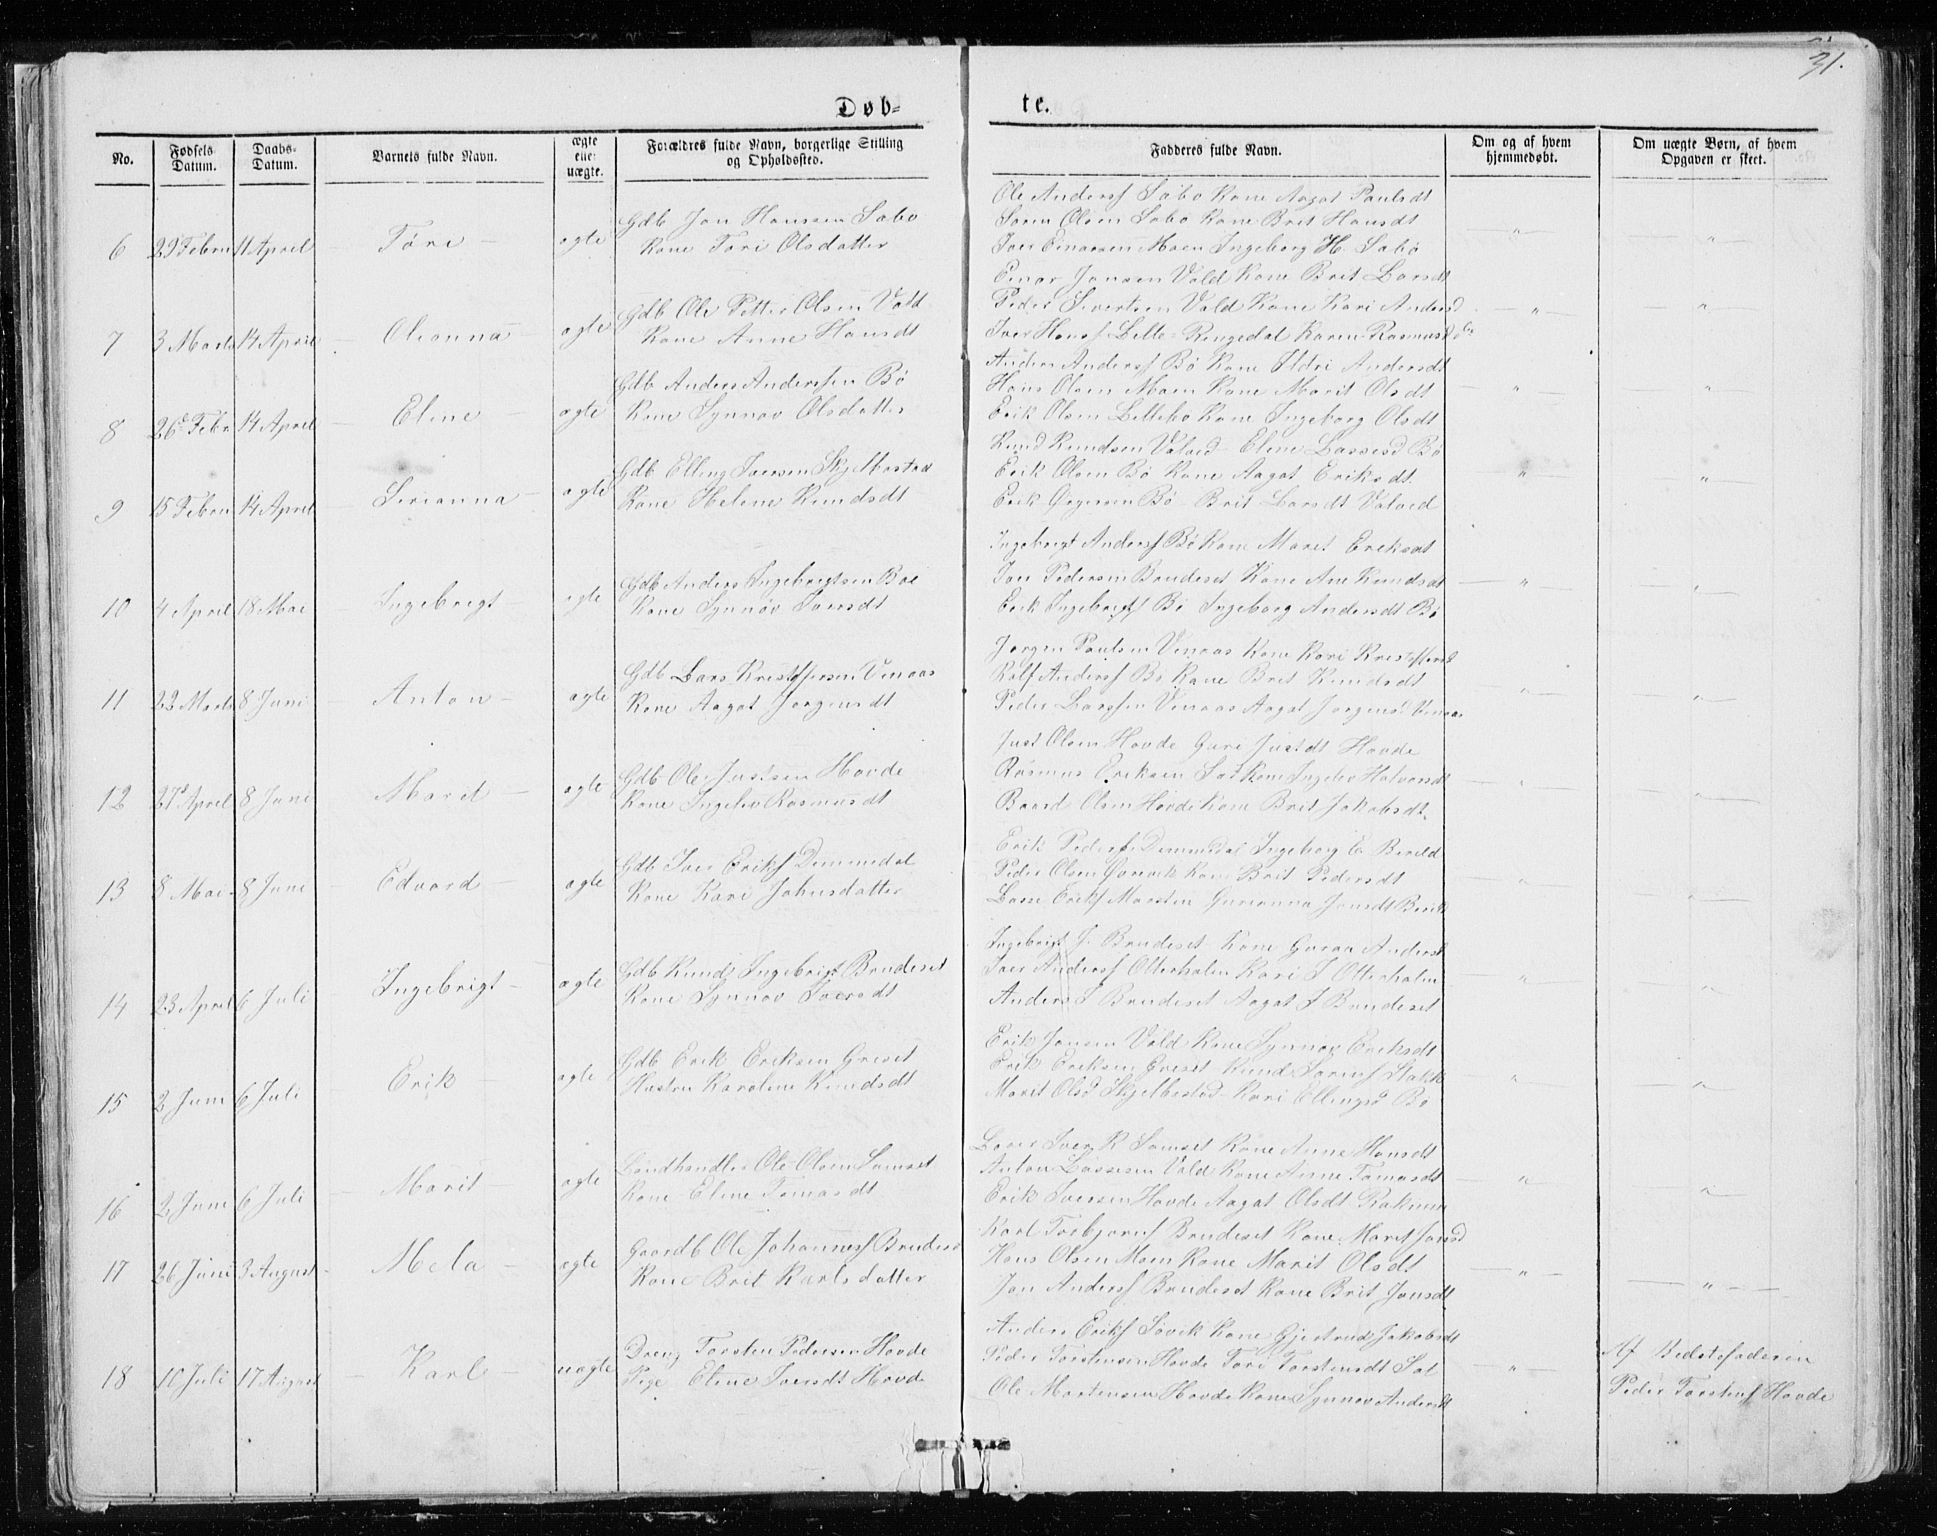 31.
Døb=
te.
No.
Fødsels Datum.
Daabs- Datum.
Barnets fulde Navn.
ægte eller uægte.
Forældres fulde Navn, borgerlige Stilling og Opholdssted.
Fadderes fulde Navn.
Om og af hvem hjemmedøbt.
Om uægte Børn, af hvem Opgaven er skeet.
Ole Andersf Sæbø Kone Aagot Paulsdt
Gdb Jon Hanssen Sæbø
Søren Olsen Sæbø Kone Brit Hansdt
6 29 Febru 11 April Tøre ægte Kone Tøri Olsdatter
Iver Einarsen Moen Ingeborg H. Sæbø — " — — " —
Einar Jonsen Vold Kone Brit Larsdt
Gdb Ole Petter Olsen Vold
Peder Sivertsen Vold Kone Kari Andersd
7 3 Marts 14 April Oleanna ægte Kone Anne Hansdt
Iver Hansf Lille-Ringedal Karen Rasmusd — " — — " —
Anders Andersf Bø Kone Ildri Andersdt
Gdb Anders Anderssen Bø
Hans Olsen Moen Kone Marit Olsdt
8 26 Febr 14 April Eline ægte Kone Synnøv Olsdatter
Erik Olsen Lillebø Kone Ingeborg Olsdt — " — — " —
Knud Knudsen Valved Eline Lassesd Bø
Gdb Elling Iversen Skjelbostad
Erik Olsen Bø Kone Aagot Eriksdt
9 15 Febru 14 April Serianna ægte Kone Helene Knudsdt
Erik Bø Brit Larsdt Valved — " — — " —
Ingebrigt Andersf Bø Kone Marit Eriksdt
Gdb Anders Ingebrigtsen Bøe
Iver Pedersen Brudeset Kone Ane Knudsdt
10 4 April 18 Mai Ingebrigt ægte Kone Synnøv Iversdt
Erik Ingebrigtf Bø Ingeborg Andersdt Bø — " — — " —
Jørgen Paulsen Venaas Kone Kari Kristoffersd
Gdb Lars Kristoffersen Venaas
Rolf Andersf Bø Kone Brit Knudsdt
11 22 Marts 8 Juni Anton ægte Kone Aagot Jørgensdt
Peder Larssen Venaas Aagot Jørgensd Venaas — " — — " —
Just Olsen Hovde Guri Justdt Hovde
Gdb Ole Justsen Hovde
Rasmus Eriksen Kone Ingelev Halvorsdt
12 27 April 8 Juni Marit ægte Kone Ingelev Rasmusdt
Baard Olsen Hovde Kone Brit Jakobsdt. — " — — " —
Erik Pedersf Dimmedal Ingeborg E
Gdb Iver Eriksf Dimmedal
Peder Olsen Kone Brit Pedersdt
13 8 Mai 8 Juni Edvard ægte Kone Kari Johnsdatter
Lasse Eriksf Gurianna Jonsdt — " — — " —
Ingebrigt J. Brudeset Kone Guraa Andersd
Gdb Knud Ingebrigt Brudeset
Iver Andersf Otterholm Kari I Otterholm
14 23 April 6 Juli Ingebrigt ægte Kone Synnøv Iversdt
Anders I Brudeset Aagot I Brudeset — " — — " —
Erik Jonsen Vold Kone Synnøv Eriksdt
Gdb Erik Eriksen Griset
Erik Eriksen Griset Knud Larsf
15 2 Juni 6 Juli Erik ægte Hustru Karoline Knudsdt
Marit Olsd Skjelbostad Kari Ellingsd Bø — " — — " —
Iver K Samset Kone Anne Hansdt
Landhandler Ole Olsen Samset
Anton Lassesen Vold Kone Anne Tomasdt
16 2 Juni 6 Juli Marit ægte Kone Eline Tomasdt
Erik Iversen Hovde Aagot Olsdt — " — — " —
Karl Torbjørnsf Brudeset Kone Marit
Gaardb Ole Johannesf Brudeset
Hans Olsen Moen Kone Marit Olsdt
17 26 Juni 3 August Mela ægte Kone Brit Karlsdatter
Jon Andersf Brudeset Kone Brit Jonsdt — " — — " —
Anders Eriksf Søvik Kone Gjertrud Jakobsdt
Dreng Torsten Pedersen Hovde
Peder Torstensen Hovde Tøri Torstensdt
18 10 Juli 17 August Karl uægte Pige Eline Iversdt Hovde
Ole Mortensen Hovde Kone Synnøv Andersdt — " — Af Bedstefaderen
Peder Torstensf Hovde